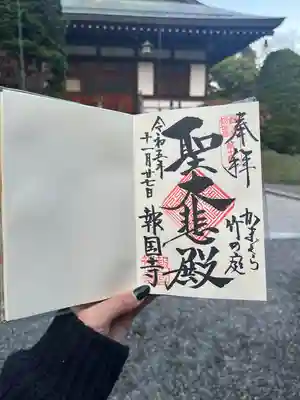 奉拝
かまくら
竹の庭
聖大悲殿
令和五年
十一月廿七日
報国寺